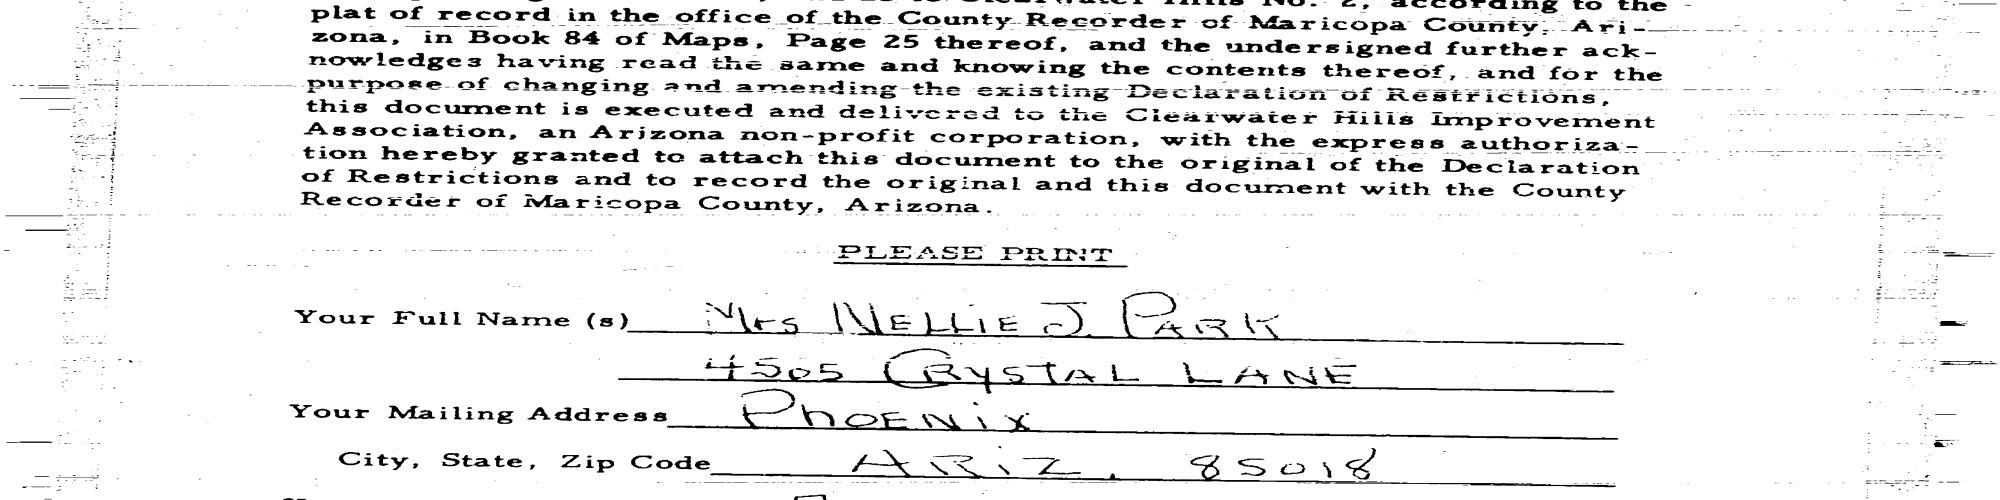 Hills No. 2, according to the
plat of record in the office of the County Recorder of Maricopa County, Ari-
zona, in Book 84 of Maps, Page 25 thereof, and the undersigned further ack-
nowledges having read the same and knowing the contents thereof, and for the
purpose of changing and amending the existing Declaration of Restrictions,
this document is executed and delivered to the Clearwater Hills Improvement
Association, an Arizona non-profit corporation, with the express authoriza-
tion hereby granted to attach this document to the original of the Declaration
of Restrictions and to record the original and this document with the County
Recorder of Maricopa County, Arizona.
PLEASE PRINT
Your Full Name (s) Mrs NELLIE J. PARK
4505 CRYSTAL LANE
Your Mailing Address PhOENiX
City, State, Zip Code ARiZ. 85018